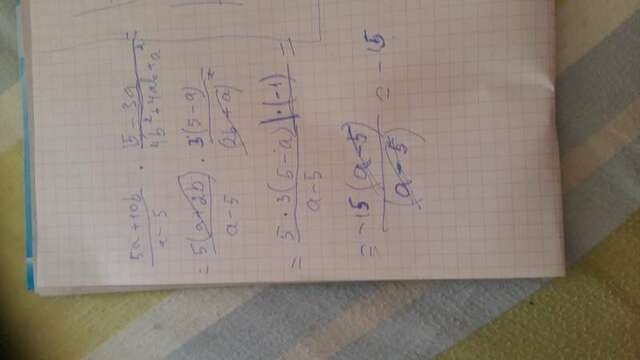 (5a+10b)/(a-5) · (15-3a)/(4b²+4ab+a²) =
= 5(a+2b)/(a-5) · 3(5-a)/(2b+a)² =
= 5·3(5-a)·(-1)/(a-5) =
= -15(a-5)/(a-5) = -15